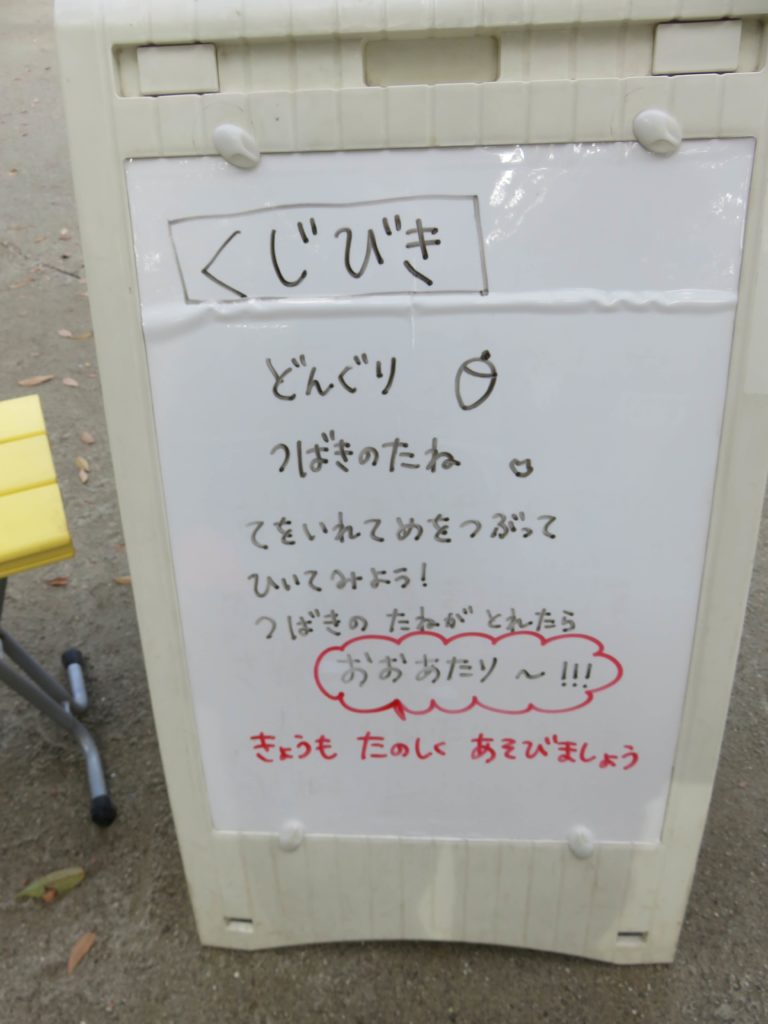 くじびき
どんぐり
つばきのたね
てをいれてめをつぶって
ひいてみよう!
つばきの たねが とれたら
おおあたり～!!!
きょうも たのしく あそびましょう